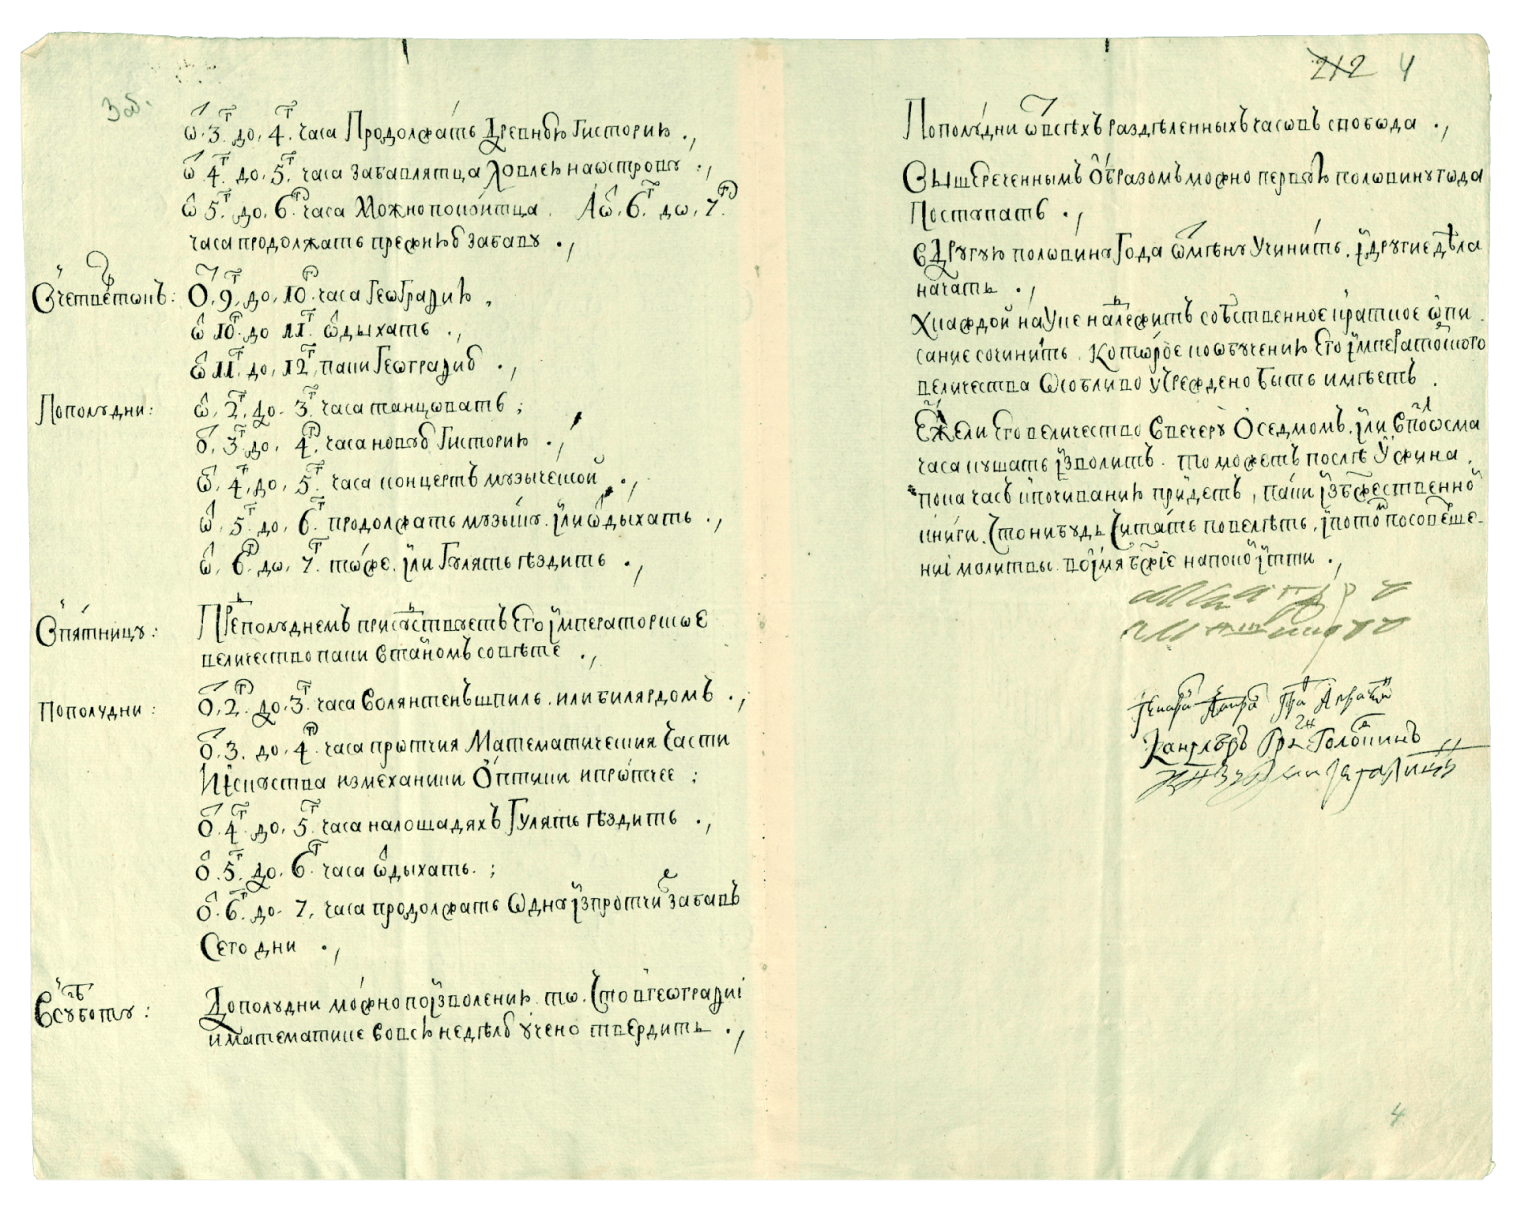 Зоб.
ѿ 3г. до, 4г. часа Продолжать Древнюю Гисторию .,
ѿ 4г. до, 5г. часа забавлятца Ловлею наѡстрову .,
ѿ 5г. до, 6г. часа Можно покоитца. А ѿ, 6г. дѡ, 7г.
часа продолжать прежнюю забаву .,
Вчетвертокъ: Ѿ, 9г, до, 10 часа Географию,
ѿ 10г. до 11г. ѿдыхать .,
ѿ 11г. до, 12г, паки Географию .,
Пополудни: ѿ, 2г, до. 3г. часа танцовать ;
ѿ, 3г. до, 4г. часа новую Гисторию .,
ѿ, 4г, до, 5г. часа концертъ музыческой .,
ѿ, 5г. до, 6г. продолжать музыку. или ѿдыхать .,
ѿ, 6г. дѡ, 7г. тоже. или Гулять ѣздить .,
Впятницу: Предполуднемъ присудствуетъ Его императорское
величество паки Втайномъ совѣте .,
Пополудни: Ѿ, 2г. до, 3г. часа Волянтенъшпиль. или билярдомъ .,
ѿ. 3. до, 4г. часа протчия Математическия Части
Искуства измеханики Оптики ипротчее ;
ѿ. 4г. до, 5г. часа налошадяхъ Гулять ѣздить .,
ѿ. 5г. до, 6г. часа ѿдыхать. ;
ѿ. 6г. до. 7, часа продолжать Ѡдна изпротчихъ забавъ
Сего дни .,
Всуботу: Дополудни можно поизволению. то. Что вгеографиі
иматематике Вовсю неделю учено твердить .,
212 4
Пополудни ѿвсѣхъ раздѣленныхъ часовъ свобода .,
Вышереченнымъ Образомъ можно первую половину года
Поступать .,
ВДругую половину Года ѿмѣну Учинить. и другие дѣла
начать .,
Хкаждой науке належитъ собственное краткое ѡпи
сание сочинить. Которое кообучению Его императорского
величества Ѡсобливо учреждено быть имѣетъ .
Ежели Его величество Ввечеру О седмомъ. или Впоосма
часа кушать изволитъ. то можетъ послѣ Ужина,
пока часъ кпочиванию придетъ, паки изъбжественной
книги. Что нибудь Читать повелѣть, и потом посовѣрше
нкі молитвы. воимя бжіе напокой итти .,
Канцлеръ Грѳ Головкинъ
4